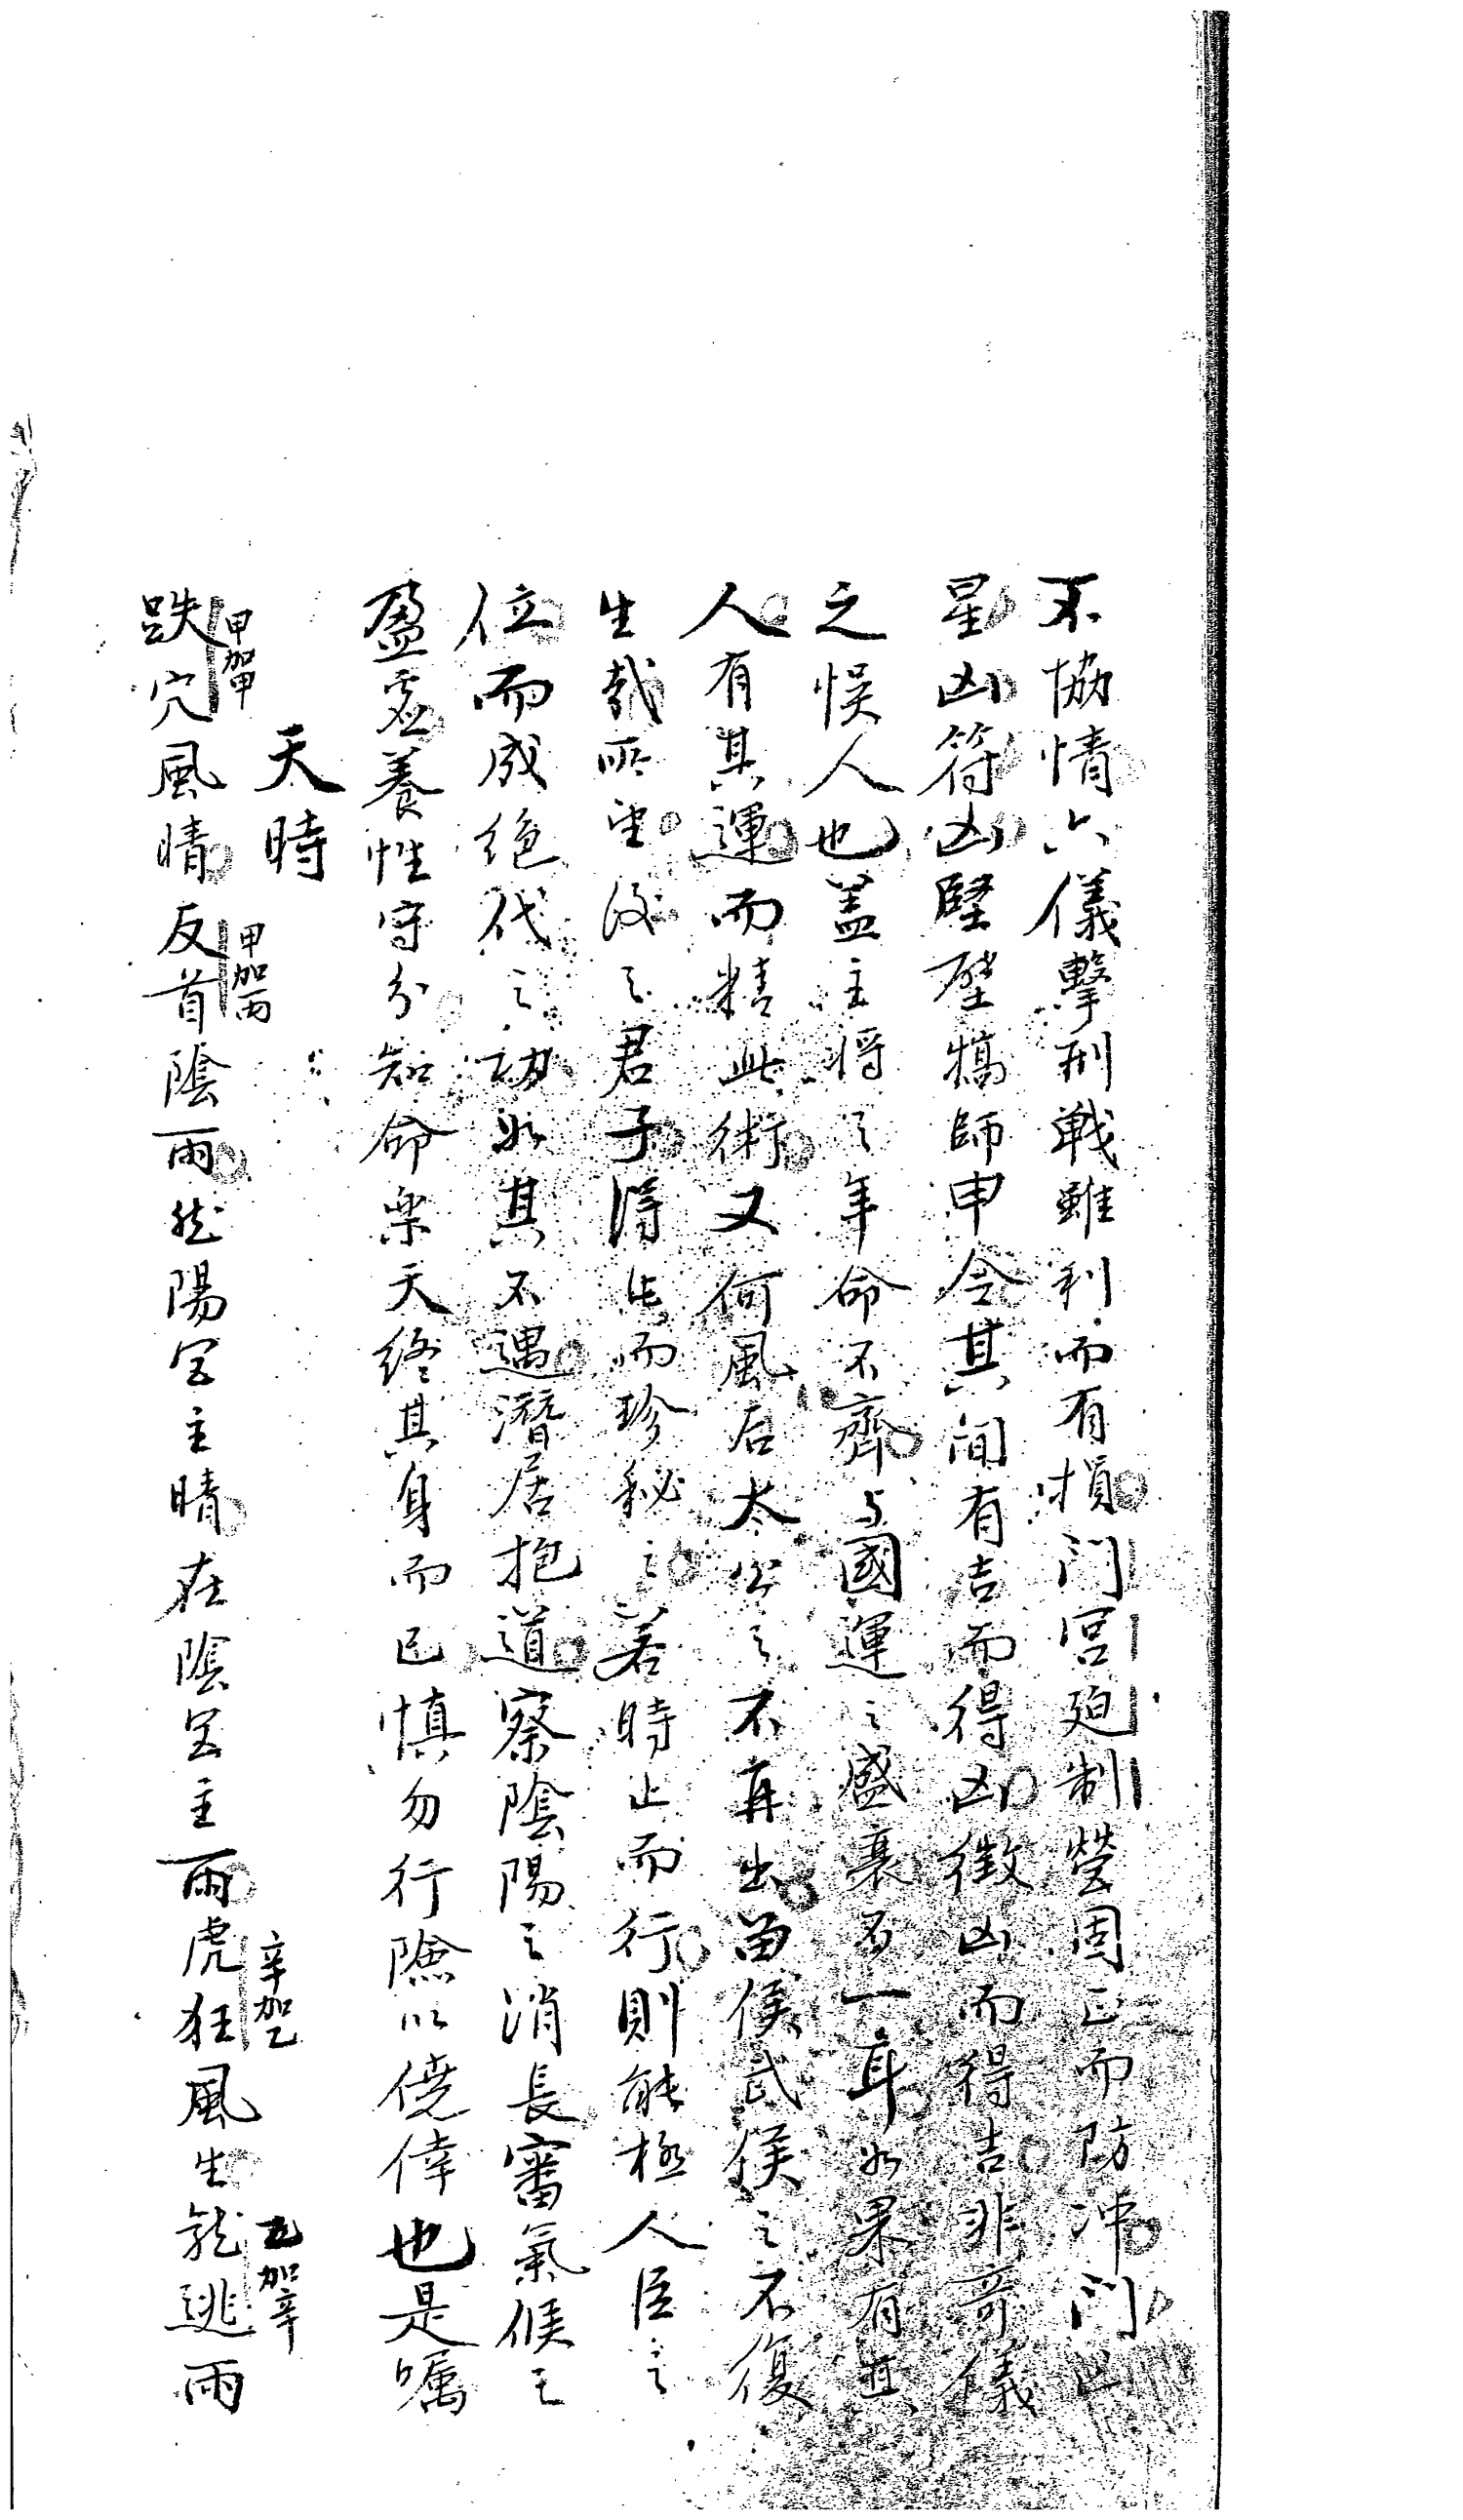 不協情六儀擊刑戰雖利而有損門宮廹制營固正而防沖門凶
星凶符凶堅壁犒師申令其間有吉而得凶徵凶而得吉非奇儀
之悮人也盖主將之年命不齊与國運之盛衰不一耳如果有其
人有其運而精此術又何風后太公之不再出畄侯武侯之不復
生哉所望後之君子得此而珍秘之若時止而行則能極人臣之
位而成绝代之功如其不遇潛居抱道察陰陽之消長審氣候之
盈虛養性守分知命樂天終其身而已慎勿行險以僥倖也是嘱
天時
甲加甲 甲加丙 辛加乙 乙加辛
跌穴風晴反首陰雨然陽宮主晴在陰宮主雨虎狂風生龍逃雨